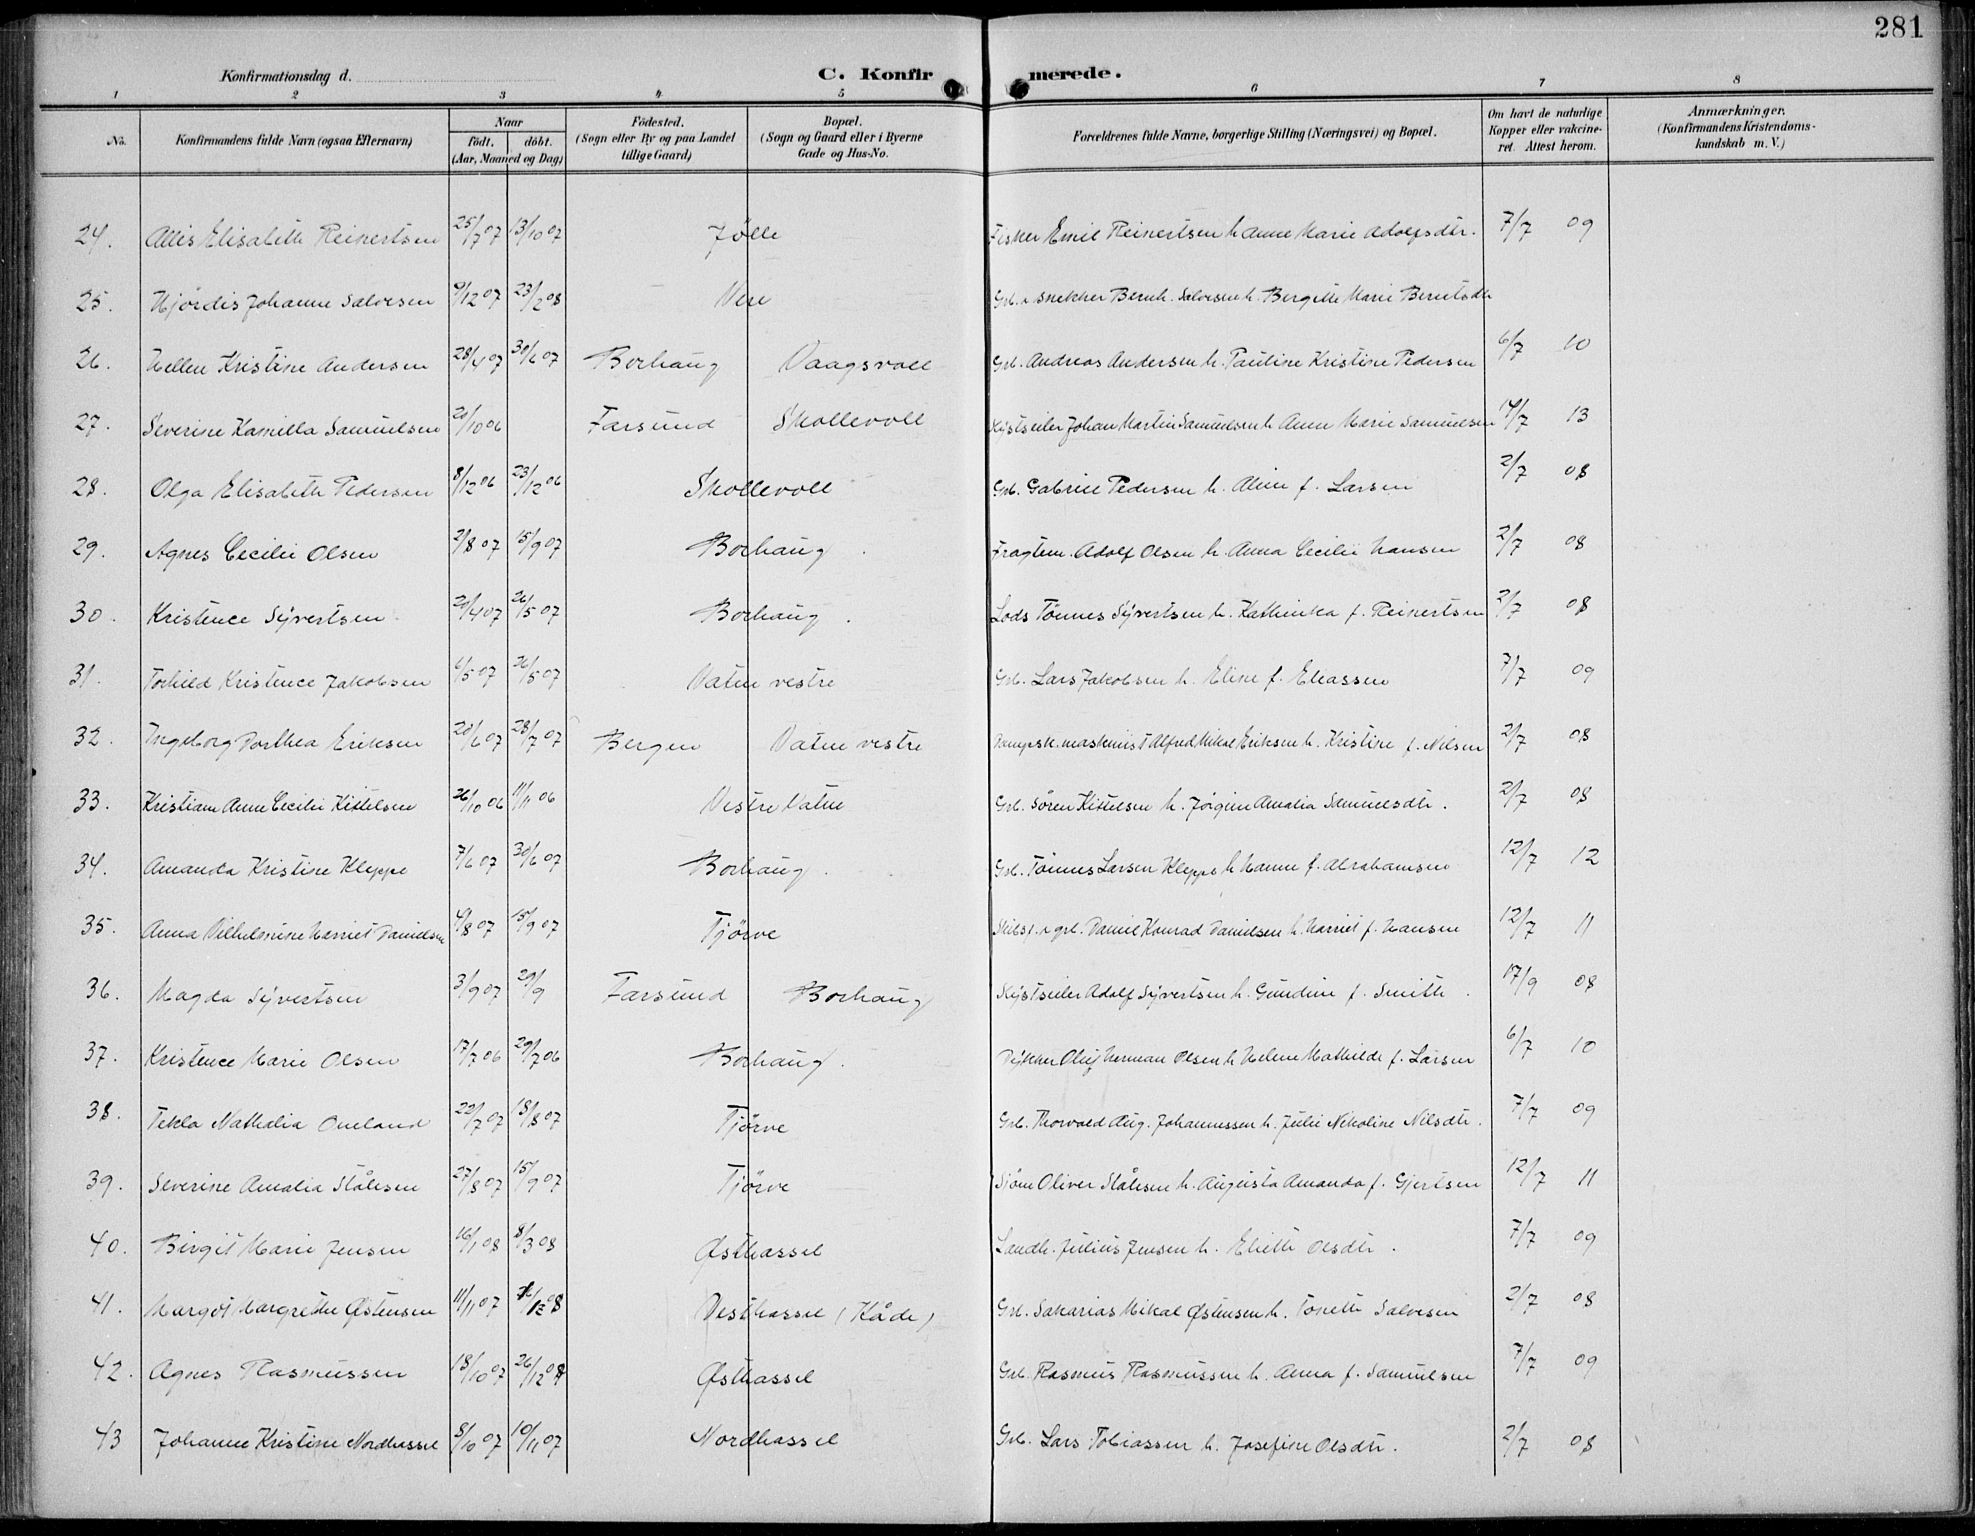 281
Konfirmationsdag d. C. Konfirmerede.
1 2 3 4 5 6 7 8
No. Konfirmandens fulde Navn (ogsaa Efternavn) Naar födt. döbt. (Aar, Maaned og Dag) Födested. (Sogn eller By og paa Landet tillige Gaard) Bopæl. (Sogn og Gaard eller i Byerne Gade og Hus-No. Forældrenes fulde Navne, borgerlige Stilling (Næringsvei) og Bopæl. Om havt de naturlige Kopper eller vakcineret. Attest herom. Anmærkninger. (Konfirmandens Kristendomskundskab m. V.)
24. Allis Elisabeth Reinertsen 25/7 07 13/10 07 Jölle Fisker Emil Reinertsen h. Anne Marie Adolfsdtr. 7/7 09
25. Hjördis Johanne Salvesen 9/12 07 23/2 08 Vere Grb. & snekker Bernh. Salvesen h. Bergitte Marie Berntsdtr
26. Hellen Kristine Andersen 28/4 07 30/6 07 Borhaug Vaagsvoll Grb. Andreas Andersen h. Pauline Kristine Pedersen 6/7 10
27. Severine Kamilla Samuelsen 20/10 06 Farsund Skollevoll Kystseiler Johan Martin Samuelsen h. Anne Marie Samuelsen 14/7 13
28. Olga Elisabeth Pedersen 8/12 06 23/12 06 Skollevoll Grb. Gabriel Pedersen h. Aline f. Larsen 2/7 08
29. Agnes Cecilie Olsen 2/8 07 15/9 07 Borhaug Fragtem. Adolf Olsen h. Anna Cecilie Hansen 2/7 08
30. Kristence Syvertsen 20/4 07 26/5 07 Borhaug Lods Tönnes Syvertsen h. Kathinka f. Reinertsen 2/7 08
31. Torhild Kristence Jakobsen 6/5 07 26/5 07 Vatne vestre Grb. Lars Jakobsen h. Eline f. Eliassen 7/7 09
32. Ingeborg Dorthea Eriksen 20/6 07 28/7 07 Bergen Vatne vestre Dampsk. maskinist Alfred Mikal Eriksen h. Kristine f. Nilsen 2/7 08
33. Kristiane Anne Cecilie Kittelsen 26/10 06 11/11 06 Vestre Vatne Grb. Sören Kittelsen h. Jörgine Amalia Samuelsdtr. 2/7 08
34. Amanda Kristine Kleppe 7/6 07 30/6 07 Borhaug Grb. Tönnes Larsen Kleppe h. Hanne f. Abrahamsen 12/7 12
35. Anna Vilhelmine Harriet Danielsen 4/8 07 15/9 07 Tjörve Skibsf. & grb. Daniel Konrad Danielsen h. Harriet f. Hansen 12/7 11
36. Magda Syvertsen 3/9 07 29/9 Farsund Borhaug Kystseiler Adolf Syvertsen h. Gundine f. Smith 17/9 08
37. Kristence Marie Olsen 17/7 06 29/7 06 Borhaug Dykker Oluf Herman Olsen h. Helene Mathilde f. Larsen 6/7 10
38. Tekla Nathalia Oneland 22/7 07 18/8 07 Tjörve Grb. Thorvald Aug. Johannessen h. Julie Nikoline Nilsdtr. 7/7 09
39. Severine Amalia Ståhlsen 27/8 07 15/9 07 Tjörve Sjöm Oliver Ståhlsen h. Augusta Amanda f. Gjertsen 12/7 11
40. Birgit Marie Jensen 16/1 08 8/3 08 Østhassel Landh. Julius Jensen h. Eliette Olsdtr. 7/7 09
41. Margot Margrethe Østensen 11/11 07 Vesthassel (Kåde) Grb. Sakarias Mikal Østensen h. Tonette Salvesen 2/7 08
42. Agnes Rasmussen 18/10 07 26/12 07 Østhassel Grb. Rasmus Rasmussen h. Anna f. Samuelsen 7/7 09
43 Johanne Kristine Nordhassel 8/10 07 10/11 07 Nordhassel Grb. Lars Tobiassen h. Josefine Olsdtr. 2/7 08